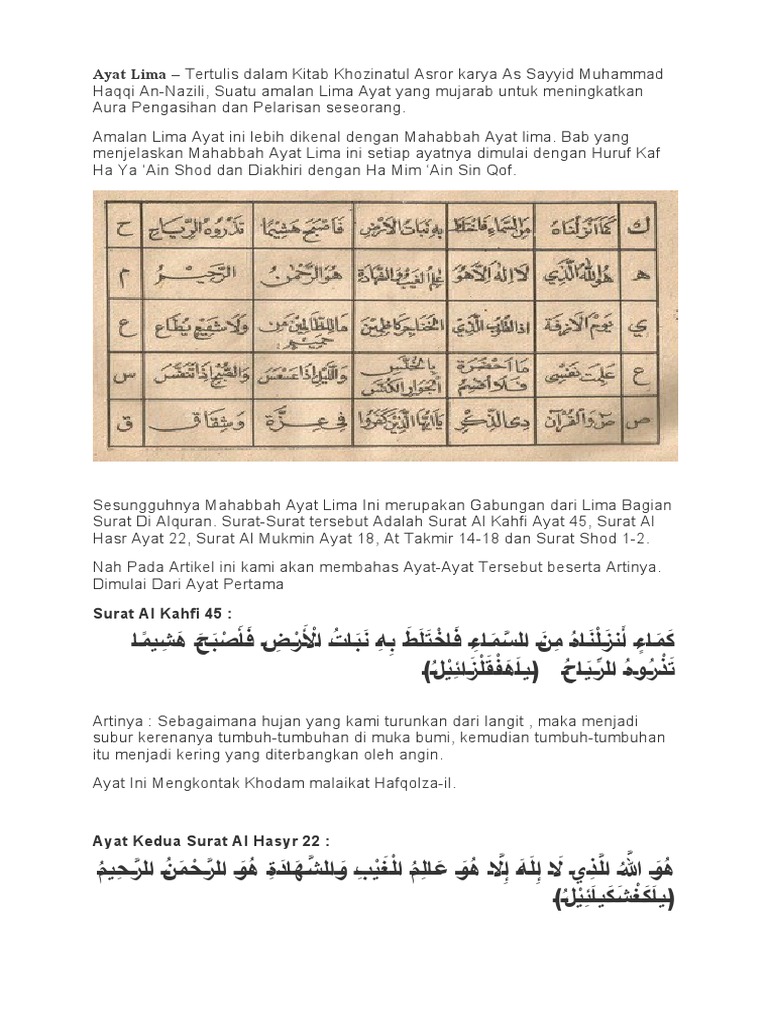 Ayat Lima – Tertulis dalam Kitab Khozinatul Asror karya As Sayyid Muhammad
Haqqi An-Nazili, Suatu amalan Lima Ayat yang mujarab untuk meningkatkan
Aura Pengasihan dan Pelarisan seseorang.
Amalan Lima Ayat ini lebih dikenal dengan Mahabbah Ayat lima. Bab yang
menjelaskan Mahabbah Ayat Lima ini setiap ayatnya dimulai dengan Huruf Kaf
Ha Ya ‘Ain Shod dan Diakhiri dengan Ha Mim ‘Ain Sin Qof.
ك كماء انزلناه من السماء فاختلط به نبات الارض فاصبح هشيما تذروه الرياح ح
ه هو الله الذي لا اله الا هو علم الغيب والشهادة هو الرحمن الرحيم م
ي يوم الازفة اذ القلوب الذي الحناجر كاظمين ما للظالمين من حميم ولا شفيع يطاع ع
ع علمت نفس ما احضرة فلا اقسم بالخنس الجوار الكنس والليل اذا عسعس والصبح اذا تنفس س
ص ص والقرآن ذي الذكر ياايها الذين كفروا في عزة وشقاق ق
Sesungguhnya Mahabbah Ayat Lima Ini merupakan Gabungan dari Lima Bagian
Surat Di Alquran. Surat-Surat tersebut Adalah Surat Al Kahfi Ayat 45, Surat Al
Hasr Ayat 22, Surat Al Mukmin Ayat 18, At Takmir 14-18 dan Surat Shod 1-2.
Nah Pada Artikel ini kami akan membahas Ayat-Ayat Tersebut beserta Artinya.
Dimulai Dari Ayat Pertama
Surat Al Kahfi 45 :
كَمَاءٍ أَنزَلْنَاهُ مِنَ السَّمَاءِ فَاخْتَلَطَ بِهِ نَبَاتُ الْأَرْضِ فَأَصْبَحَ هَشِيمًا
تَذْرُوهُ الرِّيَاحُ (يَاهَفْقَلْزَائِيْلُ)
Artinya : Sebagaimana hujan yang kami turunkan dari langit , maka menjadi
subur kerenanya tumbuh-tumbuhan di muka bumi, kemudian tumbuh-tumbuhan
itu menjadi kering yang diterbangkan oleh angin.
Ayat Ini Mengkontak Khodam malaikat Hafqolza-il.
Ayat Kedua Surat Al Hasyr 22 :
هُوَ اللَّهُ الَّذِي لَا إِلَهَ إِلَّا هُوَ عَالِمُ الْغَيْبِ وَالشَّهَادَةِ هُوَ الرَّحْمَنُ الرَّحِيمُ